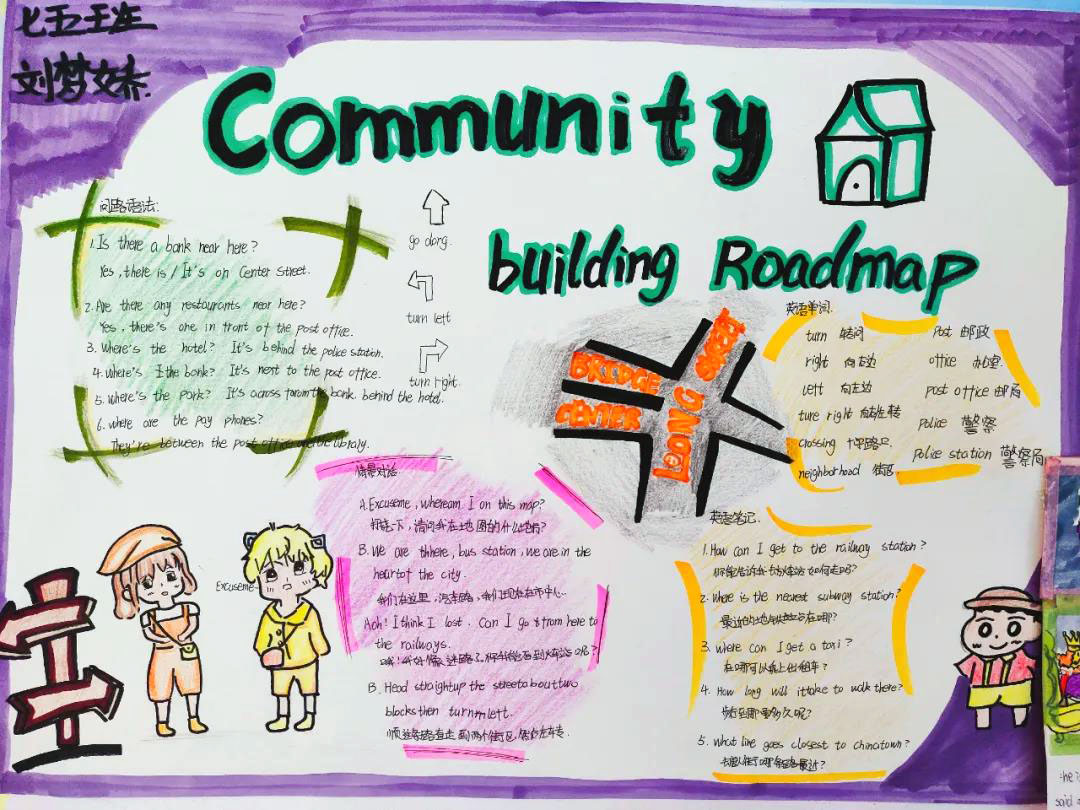 七五班
刘梦娇.
Community
building Roadmap
问路语法:
1. Is there a bank near here?
Yes, there is / It's on Center street.
2. Are there any restaurants near here?
Yes, there's one in front of the post office.
3. Where's the hotel? It's behind the police station.
4. Where's the bank? It's next to the post office.
5. where's the park? It's across from the bank. behind the hotel.
6. where are the pay phones?
They're between the post office and the library.
go along.
turn left
turn right.
BRIDGE
CENTER
LOONG
STREET
英语单词.
turn 转向
right 向右边
left 向左边
ture right 向右转
crossing 十字路口
neighborhood 街区
Post 邮政
office 办公室
post office 邮局
Police 警察
Police station 警察局
情景对话.
A. Excuseme, wheream I on this map?
打扰一下，请问我在地图的什么地方?
B. We are thhere, bus station, we are in the
heartof the city.
我们在这里，汽车站，我们现在在市中心.
Aoh! I think I lost. Can I go from here to
the railways.
B. Head straightup the streetabouttwo
blocks then turn left.
Excuseme~
英语笔记.
1. How can I get to the railway station?
你能告诉我去火车站如何走吗?
2. where is the nearest subway station?
最近的地铁站在哪?
3. where can I get a taxi?
在哪可以乘上出租车?
4. How long will ittake to walk there?
步行到那要多久呢?
5. what line goes closest to chinatown?
he is
said